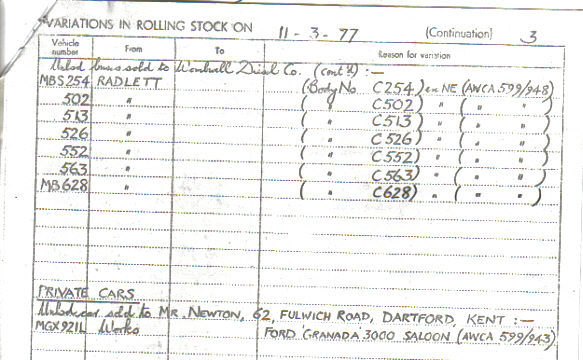 VARIATIONS IN ROLLING STOCK ON 11-3-77 (Continuation) 3
Vehicle number From To Reason for variation
buses sold to Wombwell Diesel Co. (cont'd) :—
MBS254 RADLETT (Body No. C254) ex NE (AWCA 599/948)
502 " ( " C502) " ( " " )
513 " ( " C513) " ( " " )
526 " ( " C526) " ( " " )
552 " ( " C552) " ( " " )
563 " ( " C563) " ( " " )
MB628 " ( " C628) " ( " " )
PRIVATE CARS
car sold to MR. NEWTON, 62, FULWICH ROAD, DARTFORD, KENT :—
MGX921L Works FORD 'GRANADA' 3000 SALOON (AWCA 599/943)